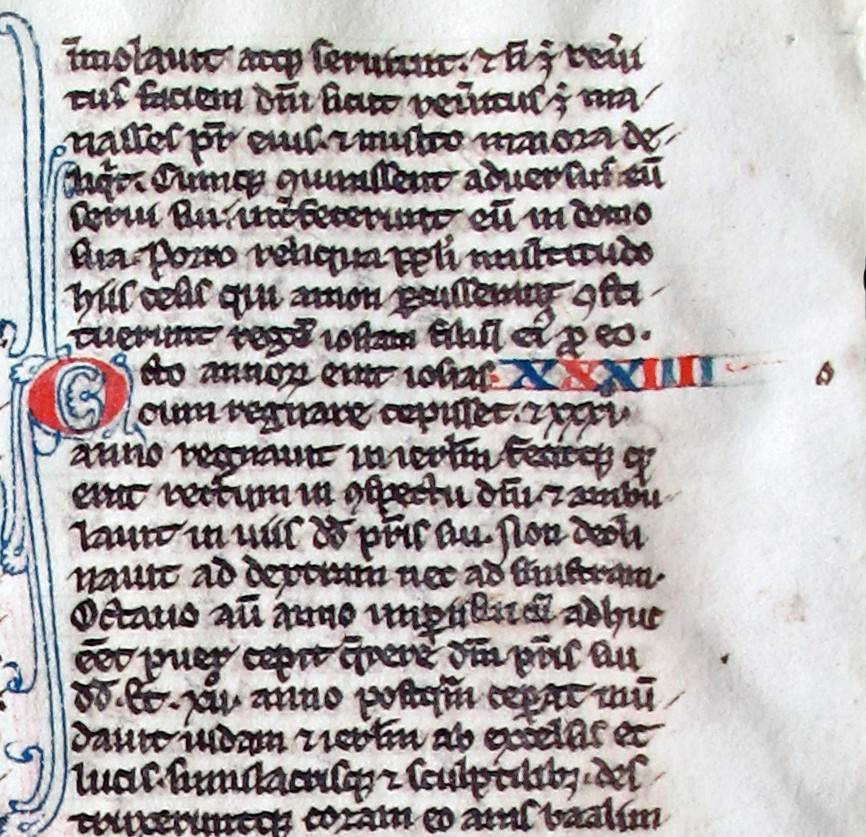 īmolauit atqꝫ seruiuit. ⁊ ñ ÷ reu̾i
tus faciem dn̄i sicut reu̾itus ÷ ma
nasses pr̄ eius. ⁊ multo maiora de
liqͥt. Cumqꝫ ꝯiurassent aduersus eū
serui sui. int̾fecerunt eū in domo
sua. Porro reliqua ppl̓i multitudo
hiis cesis qui amon ꝑcusserant ꝯsti
tuerunt regē iosiam filiū ei᷒ ꝓ eo.
Octo annoꝝ erat iosias XXXIIII
cum regnare cepisset. ⁊ xxxi.
anno regnauit in ierlm̄. fecitqꝫ qͦ
erat rectum in ꝯspectu dn̄i. ⁊ ambu
lauit in uiis dd̄ pr̄is sui. Non decli
nauit ad dextram nec ad sinistram.
Octauo aū anno imperii sui cū adhuc
eēt puer cepit q̄rere dm̄ pr̄is sui
dd̄. Et. xii. anno postqͣm ceperat mū
dauit iudam ⁊ ierlm̄ ab excelsis et
lucis. simulacrisqꝫ ⁊ sculptilibꝫ. des
truxeruntqꝫ coram eo aras baalim